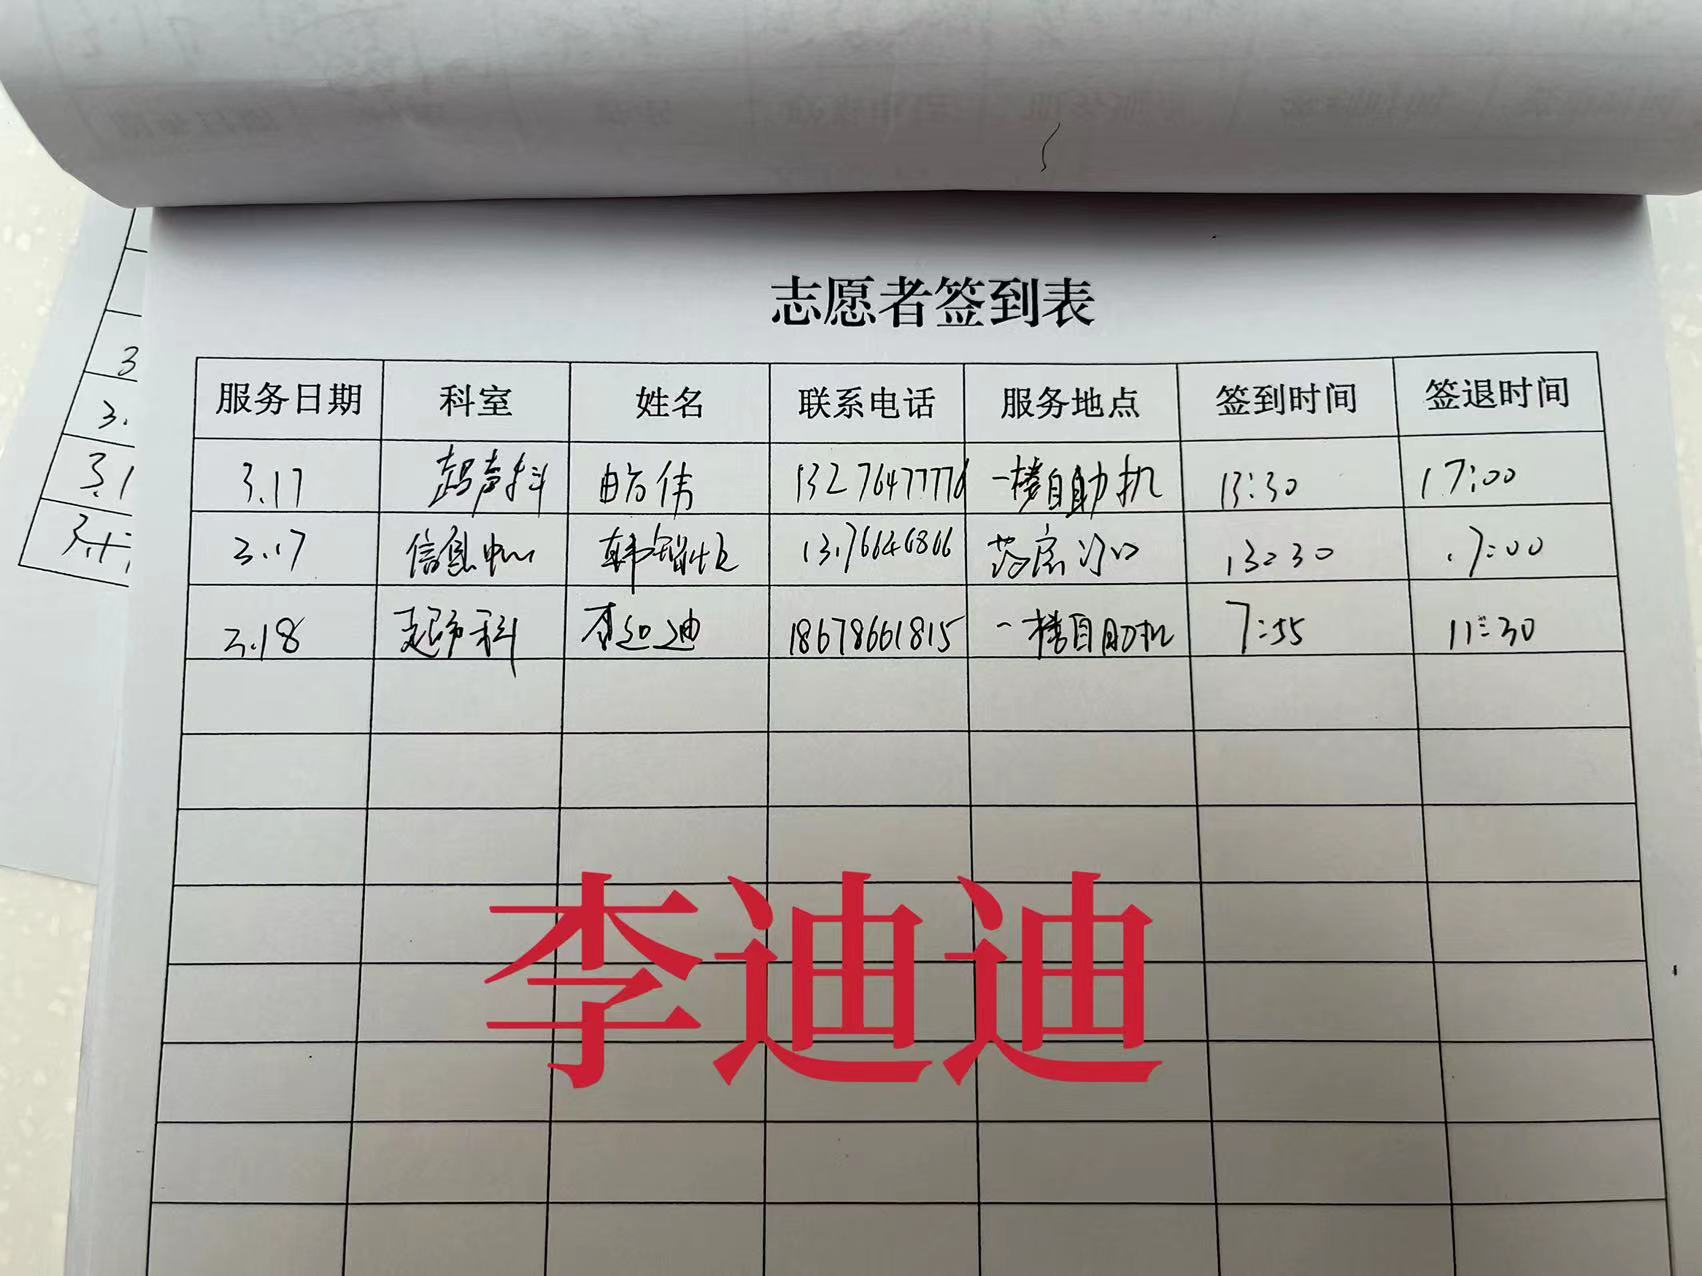 志愿者签到表
服务日期 科室 姓名 联系电话 服务地点 签到时间 签退时间
3.17 超声科 伟 1327647777 一楼自助机 13:30 17:00
3.17 信息中心 韩 13.76646866 药房门口 13:30 17:00
3.18 超声科 李迪迪 18678661815 一楼自助机 7:55 11:30
李迪迪
3
3.
3.1
3.17